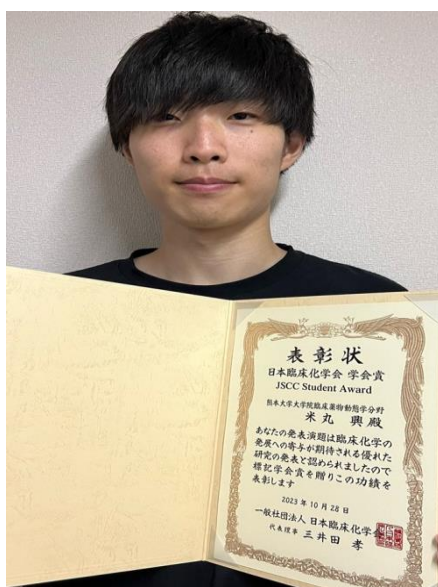 表彰状
日本臨床化学会 学会賞
JSCC Student Award
熊本大学大学院臨床薬物動態学分野
米丸 興 殿
あなたの発表演題は臨床化学の
発展への寄与が期待される優れた
研究の発表と認められましたので
標記学会賞を贈りこの功績を
表彰します
2023年10月28日
一般社団法人 日本臨床化学会
代表理事 三井田 孝